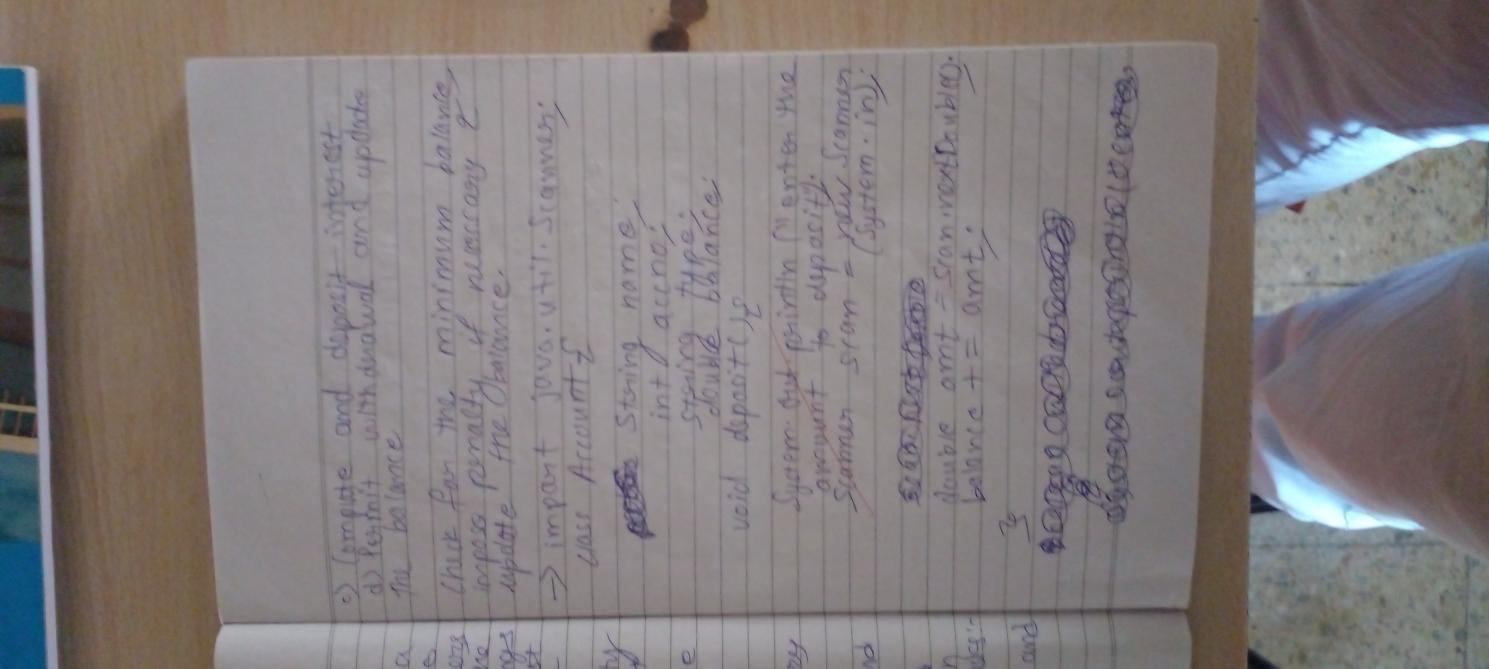 c) Compute and deposit interest
d) Permit withdrawal and update
the balance
Check for the minimum balance,
impose penalty if necessary &
update the balance.
-> import java.util.Scanner;
class Account {
String name;
int accno;
String type;
double balance;
void deposit() {
System.out.println("enter the
amount to deposit");
Scanner scan = new Scanner
(System.in);
double amt = scan.nextDouble();
balance += amt;
}
a
e.
ers
the
ngs
st
ty
e
ay
nd
n
des:-
and